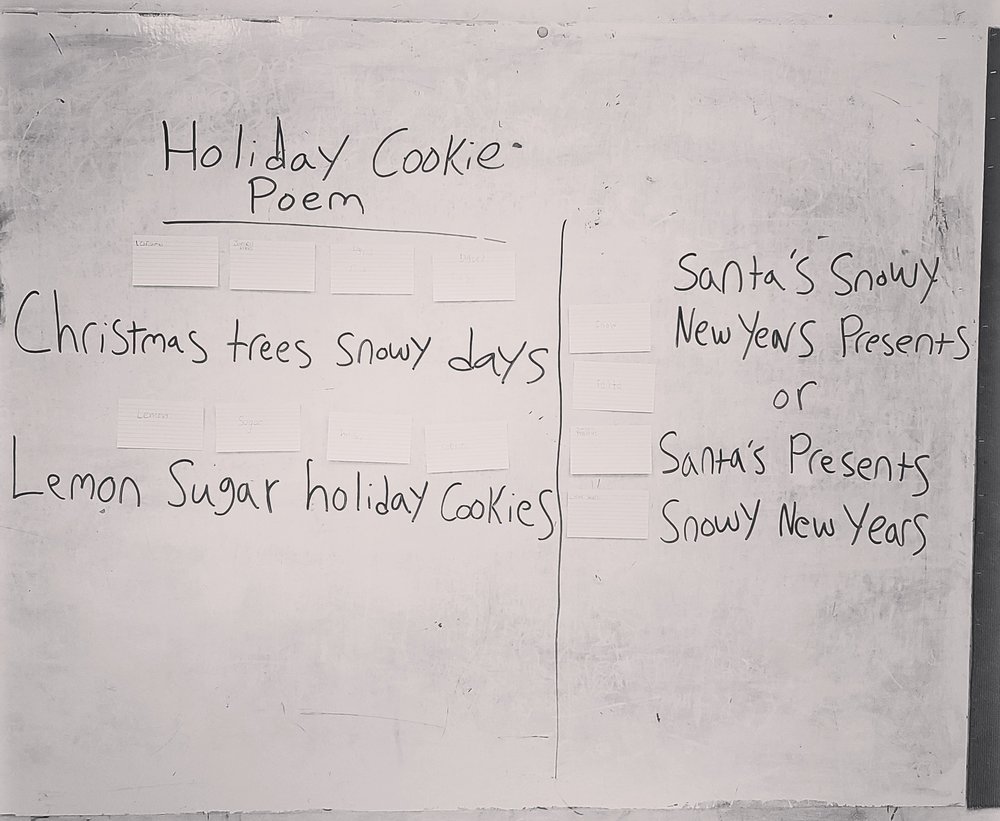 Holiday Cookie
Poem
Christmas trees snowy days
Lemon Sugar
Lemon Sugar holiday Cookies
Santa's Snowy
New Years Presents
or
Santa's Presents
Snowy New Years